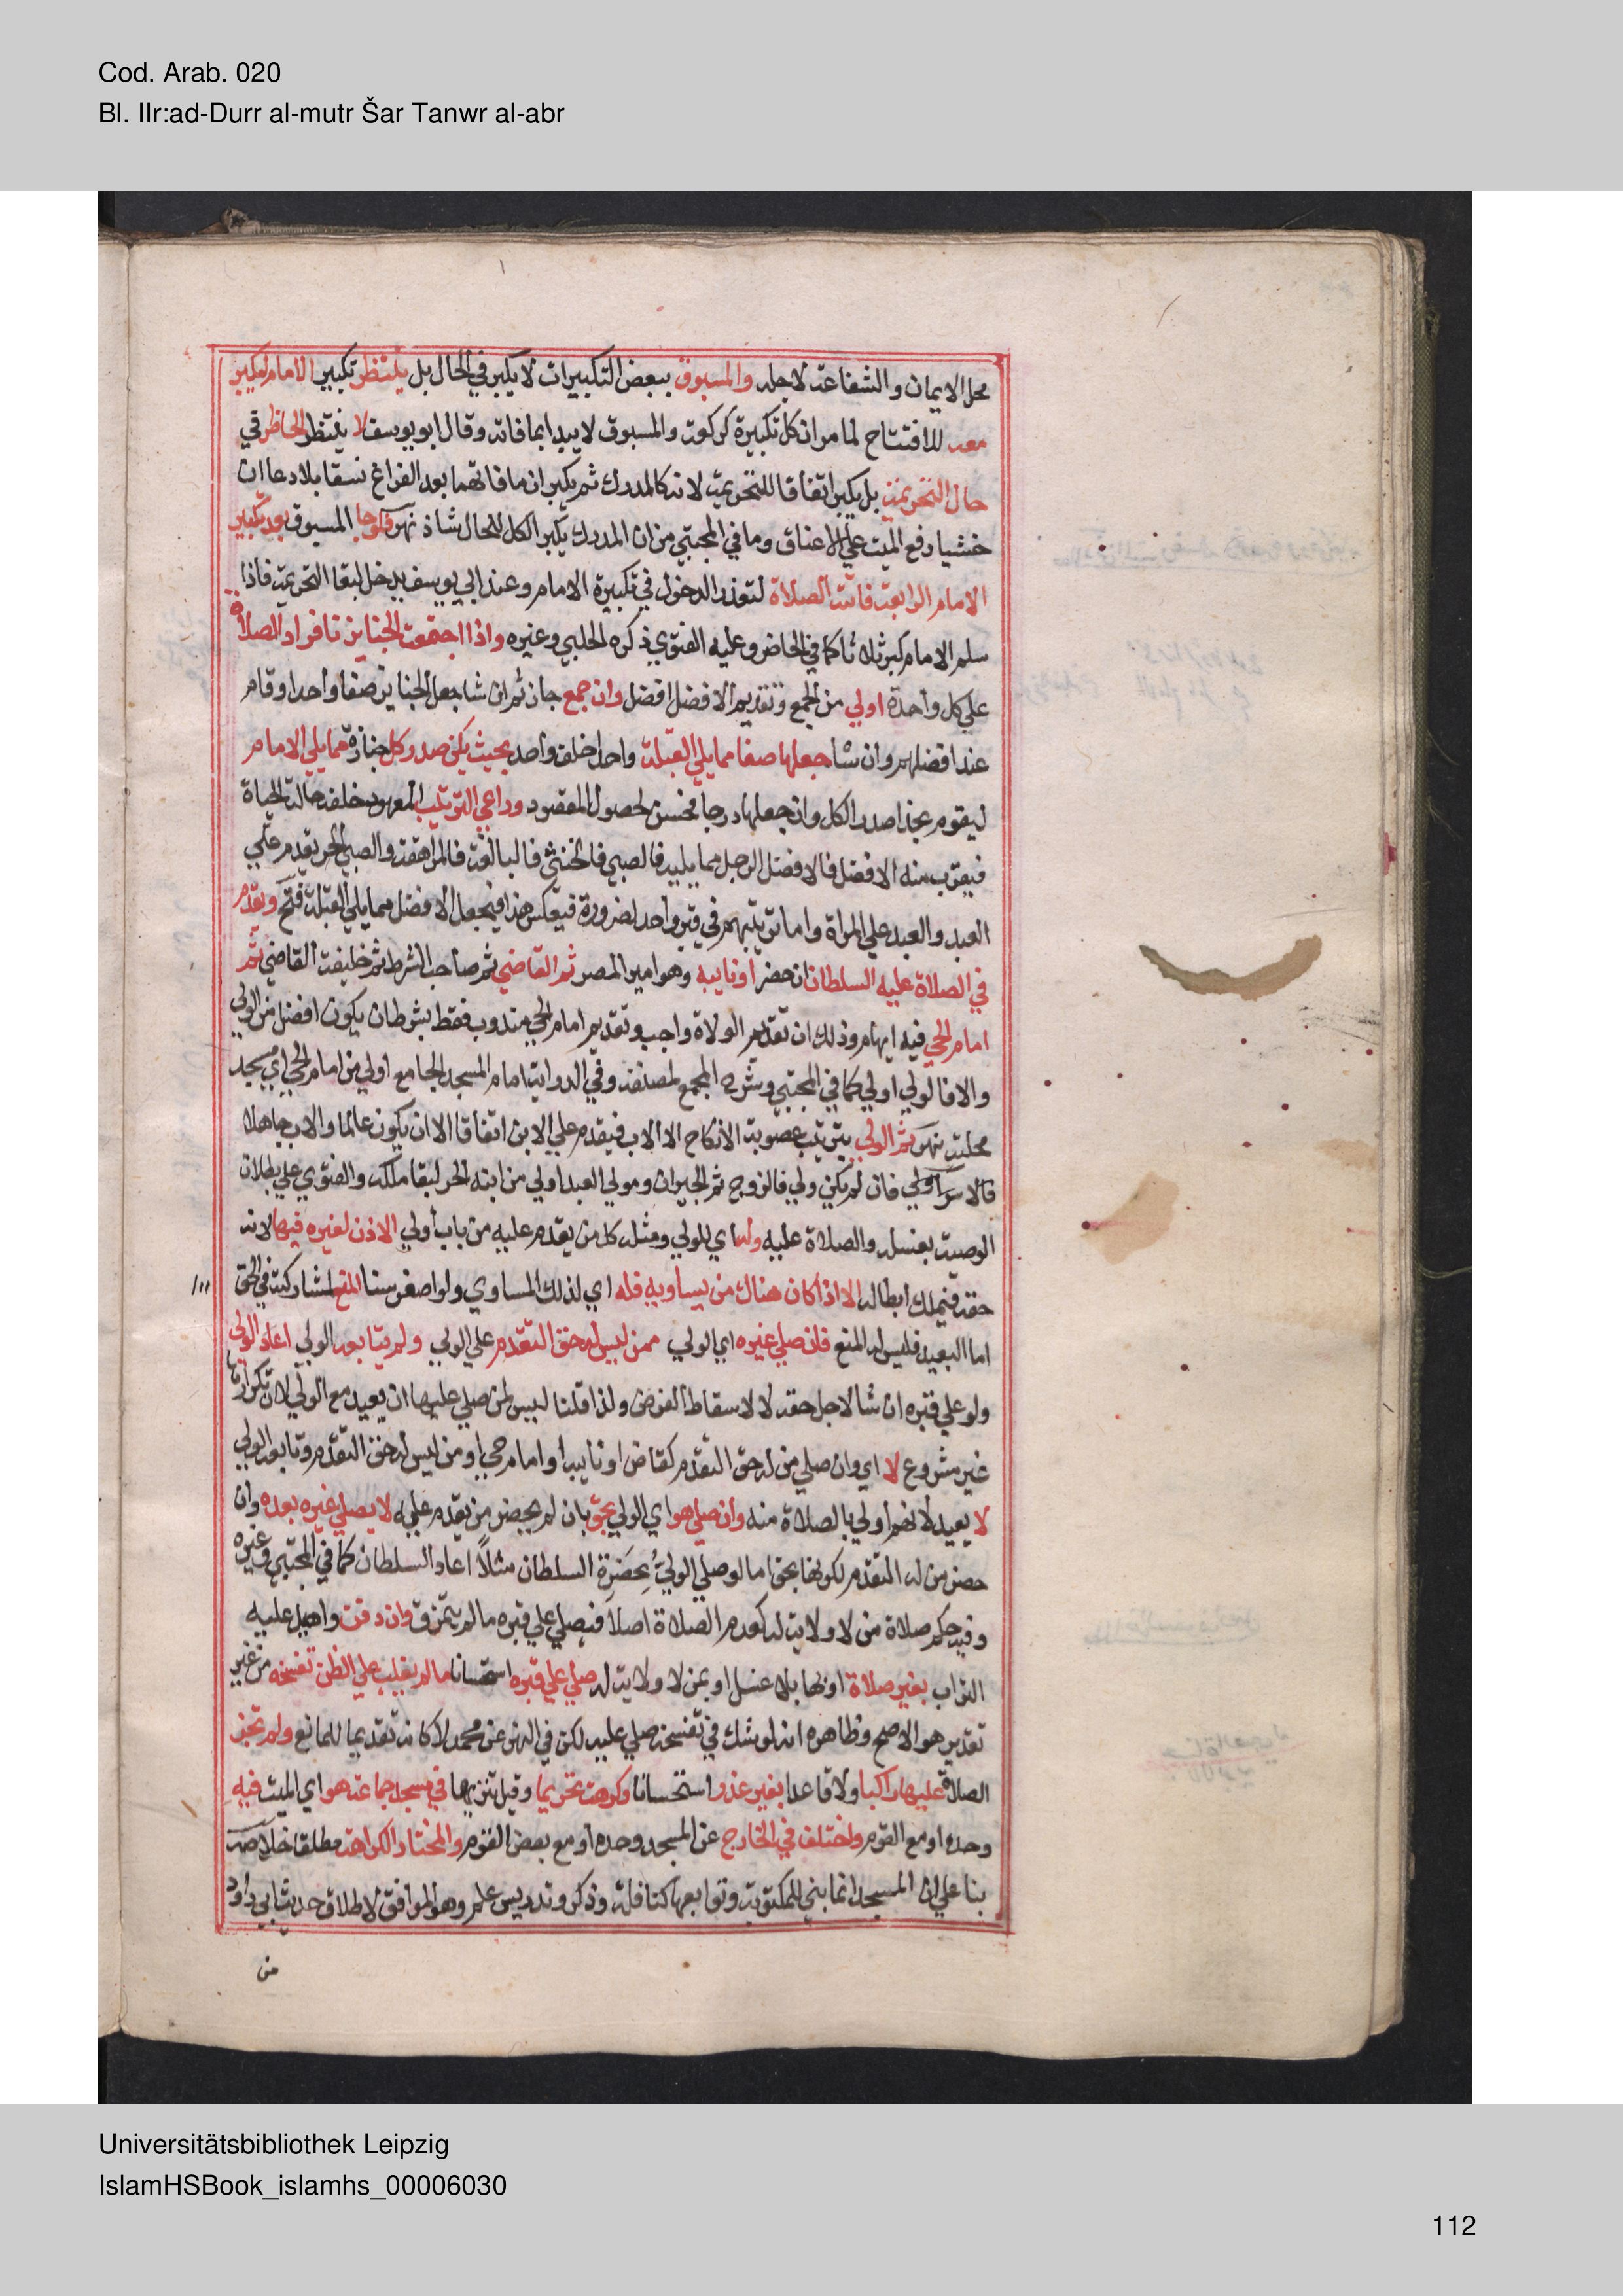 Cod. Arab. 020
Bl. IIr:ad-Durr al-mutr Šar Tanwr al-abr
محل الايمان والشفاعة لاجله والمسبوق ببعض التكبيرات لا يكبر في الحال بل ينتظر تكبير الامام ليكبر
معه للافتتاح لما مر ان كل تكبيرة كركعة والمسبوق لا يبدا بما فاته وقال ابو يوسف لا ينتظر الحاظر في
حال التحريمة بل يكبر اتفاقا للتحريمة لانه كالمدرك ثم يكبران ما فاتهما بعد الفراغ نسقا بلا دعا ان
خشيا رفع الميت علي الاعناق وما في المجتبي من ان المدرك يكبر الكل للحال شاذ نهر فلو جا المسبوق بعد تكبير
الامام الرابعة فاتته الصلاة لتعذر الدخول في تكبيرة الامام وعند ابي يوسف يدخل لبقا التحريمة فاذا
سلم الامام كبر ثلاثا كما في الحاضر وعليه الفتوي ذكره الحلبي وغيره واذا اجتمعت الجنايز فافراد الصلاة
علي كل واحدة اولي من الجمع وتقديم الافضل افضل وان جمع جاز ثم ان شا جعل الجنايز صفا واحدا وقام
عند افضلهم وان شا جعلها صفا مما يلي القبلة واحدا خلف واحد بحيث يكن صدر كل جنازة مما يلي الامام
ليقوم بحذا صدر الكل وان جعلها درجا فحسن لحصول المقصود وراعي الترتيب المعهود خلفه حالة الحياة
فيقرب منه الافضل فالافضل الرجل مما يليه فالصبي فالخنثي فالبالغة فالمراهقة والصبي الحر يقدم علي
العبد والعبد علي المراة واما ترتيبهم في قبر واحد لضرورة فبعكس هذا فيجعل الافضل مما يلي القبلة فتح ويقدم
في الصلاة عليه السلطان ان حضر او نايبه وهو امير المصر ثم القاضي ثم صاحب الشرط ثم خليفة القاضي ثم
امام الحي فيه ايهام وذلك ان تقديم الولاة واجب وتقديم امام الحي مندوب فقط بشرط ان يكون افضل من الولي
والا فالولي اولي كما في المجتبي وشرح المجمع لمصنفه وفي الدراية امام المسجد الجامع اولي من امام الحي اي مسجد
محلته نهر ثم الولي بترتيب عصوبة الانكاح الا الاب فيقدم علي الابن اتفاقا الا ان يكون عالما والاب جاهلا
فالاسن اولي فان لم يكن ولي فالزوج ثم الجيران ومولي العبد اولي من ابنه الحر لبقا ملكه والفتوي علي بطلان
الوصية بغسله والصلاة عليه وله اي للولي ومثله كل من يقدم عليه من باب اولي الاذن لغيره فيها لانه
حقه فيملك ابطاله الا اذا كان هناك من يساويه فله اي لذلك المساوي ولو اصغر سنا المنع لمشاركته في الحق
اما البعيد فليس له المنع فان صلي غيره اي الولي ممن ليس له حق التقدم علي الولي ولم يتابعه الولي اعاد الولي
ولو علي قبره ان شا لاجل حقه لا لاسقاط الفرض ولذا قلنا ليس لمن صلي عليها ان يعيد مع الولي لان تكرارها
غير مشروع لا اي وان صلي من له حق التقدم كقاض او نايبه او امام حي او من ليس له حق التقدم وتابعه الولي
لا يعيد لانهم اولي بالصلاة منه وان صلي هو اي الولي بحق بان لم يحضر من يقدم عليه لا يصلي غيره بعده وان
حضر من له التقدم لكونها بحق اما لو صلي الولي بحضرة السلطان مثلا اعاد السلطان كما في المجتبي وغيره
وفيه حكم صلاة من لا ولاية له كعدم الصلاة اصلا فيصلي علي قبره ما لم يتمزق وان دفن واهيل عليه
التراب بغير صلاة او بها بلا غسل او بمن لا ولاية له صلي علي قبره استحسانا ما لم يغلب علي الظن تفسخه من غير
تقدير هو الاصح وظاهره انه لو شك في تفسخه صلي عليه لكن في النهر عن محمد لا كانه تقديما للمانع ولم تجز
الصلاة عليها راكبا ولا قاعدا بغير عذر استحسانا وكرهت تحريما وقيل تنزيها في مسجد جماعة هو اي الميت فيه
وحده او مع القوم واختلف في الخارج عن المسجد وحده او مع بعض القوم والمختار الكراهة مطلقا خلاصة
بنا علي ان المسجد انما بني للمكتوبة وتوابعها كنافلة وذكر وتدريس علم وهو الموافق لاطلاق حديث ابي داود
من
١١١
Universitätsbibliothek Leipzig
IslamHSBook_islamhs_00006030
112